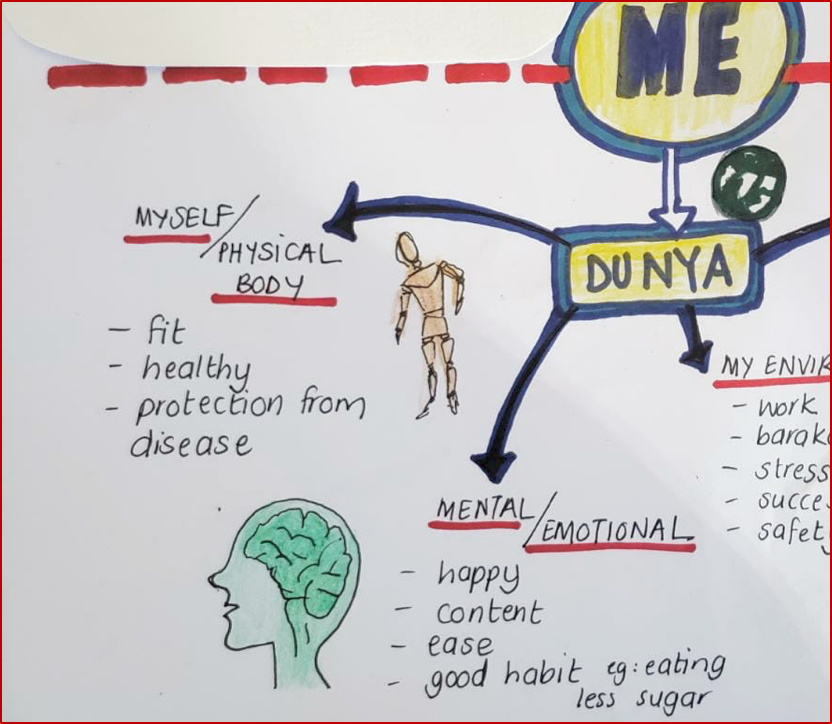 ME
DUNYA
MYSELF/
PHYSICAL
BODY
- fit
- healthy
- protection from
disease
MENTAL/
EMOTIONAL
- happy
- content
- ease
- good habit eg: eating
less sugar
MY ENVIR
- work
- barak
- stress
- succe
- safety